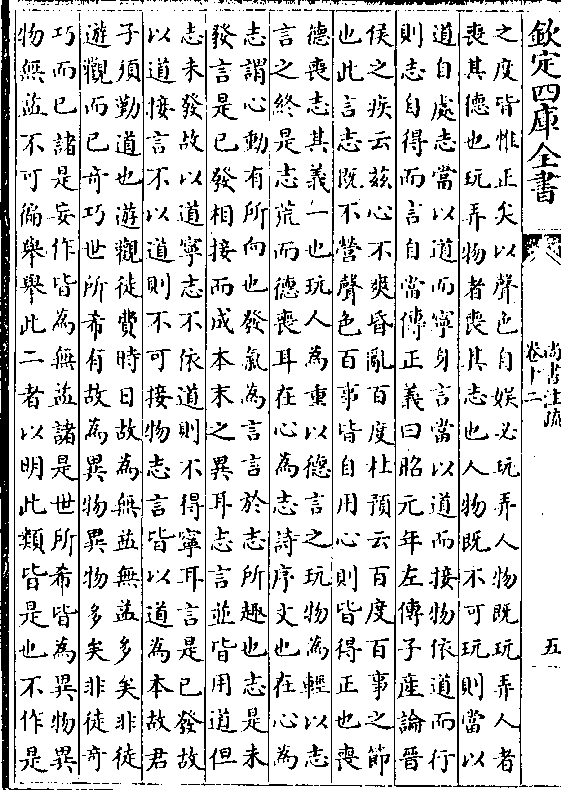 欽定四庫全書
尚書注疏
卷十二
五
之度皆惟正矣以聲色自娛必玩弄人物既玩弄人者
喪其德也玩弄物者喪其志也人物既不可玩則當以
道自處志當以道而寧身言當以道而接物依道而行
則志自得而言自當傳正義曰昭元年左傳子產論晉
侯之疾云茲心不爽昏亂百度杜預云百度百事之節
也此言志既不營聲色百事皆自用心則皆得正也喪
德喪志其義一也玩人為重以德言之玩物為輕以志
言之終是志荒而德喪耳在心為志詩序文也在心為
志謂心動有所向也發氣為言言於志所趣也志是未
發言是已發相接而成本末之異耳志言並皆用道但
志未發故以道寧志不依道則不得寧耳言是已發故
以道接言不以道則不可接物志言皆以道為本故君
子須勤道也遊觀徒費時日故為無益無益多矣非徒
遊觀而已奇巧世所希有故為異物異物多矣非徒奇
巧而已諸是妄作皆為無益諸是世所希皆為異物異
物無益不可徧舉舉此二者以明此類皆是也不作是